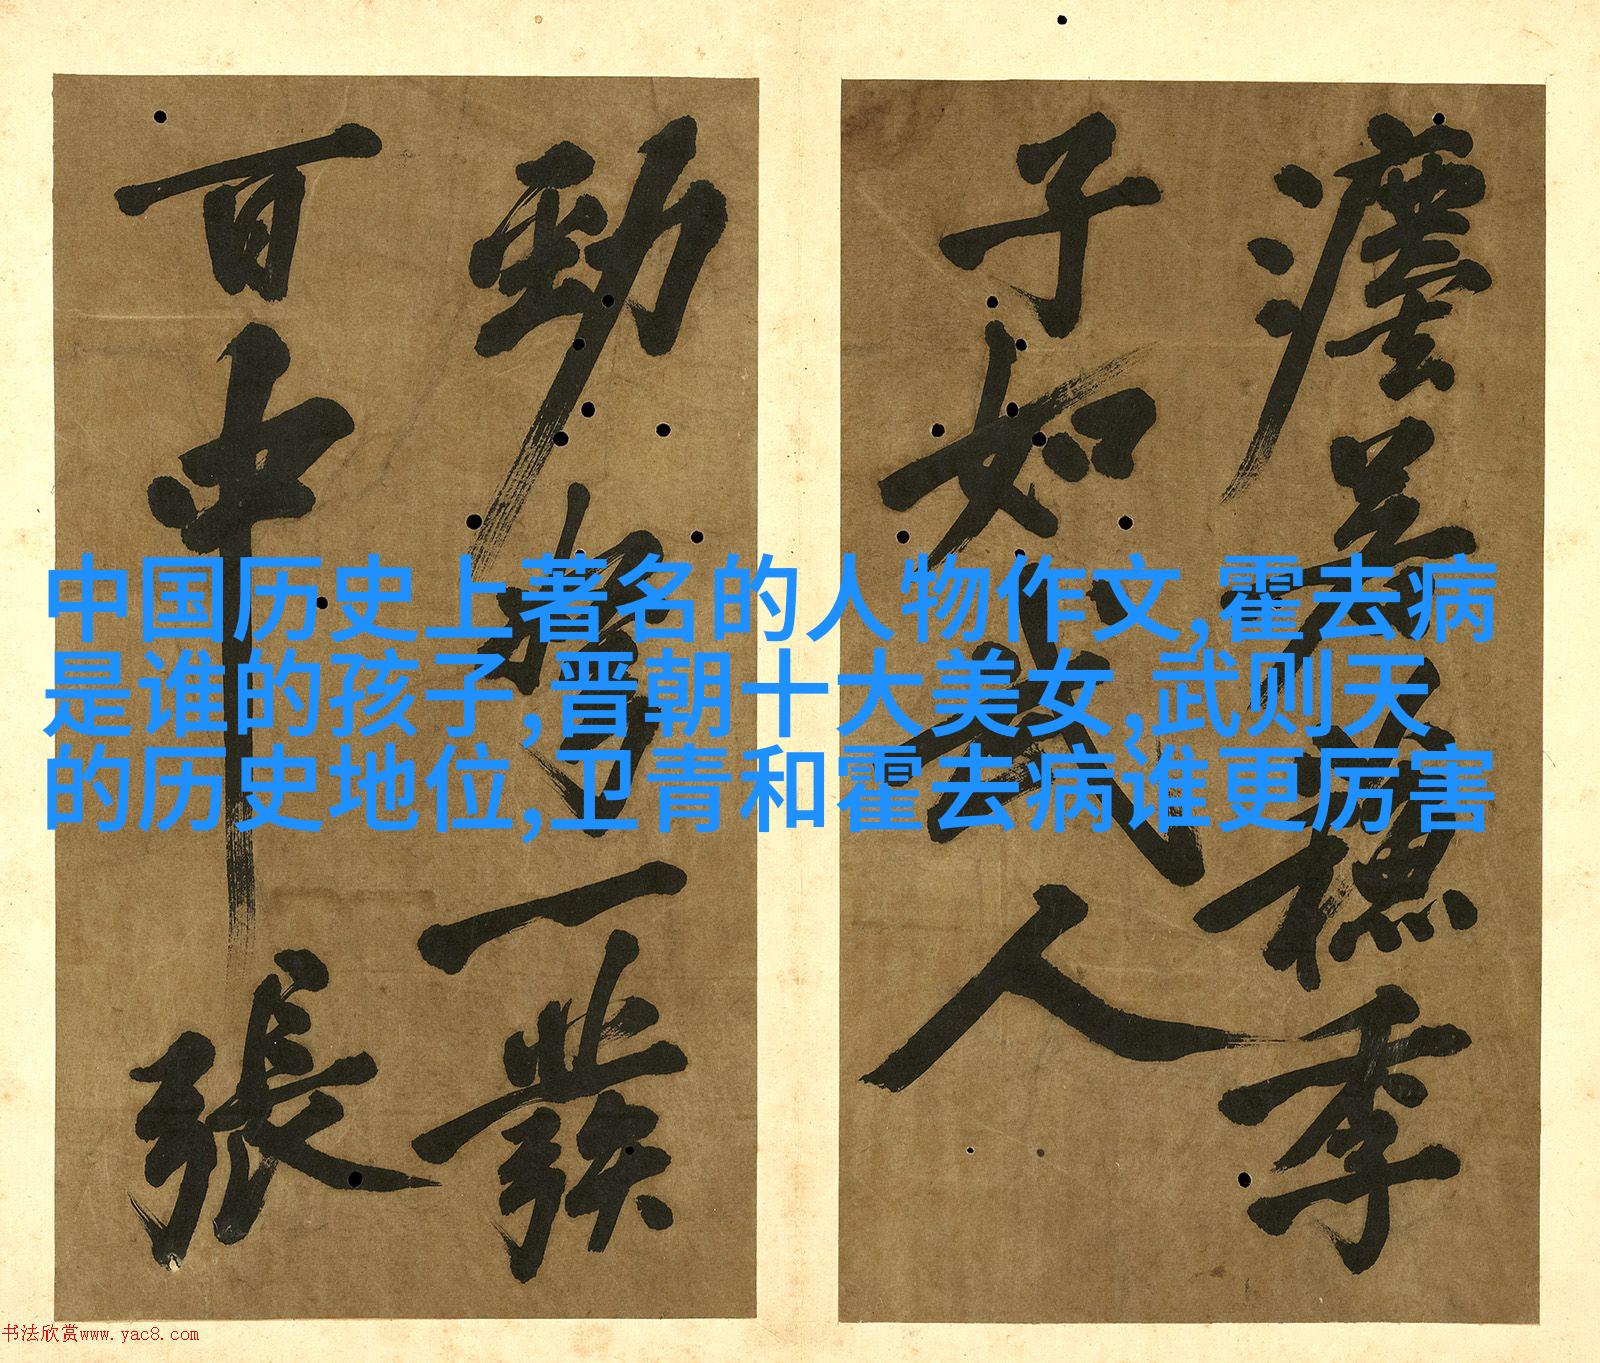 中国历史上著名的人物作文,霍去病
是谁的孩子,晋朝十大美女,武则天
的历史地位,卫青和霍去病谁更厉害
季
子如人
勁一發
百中張
书法欣赏www.yac8.com